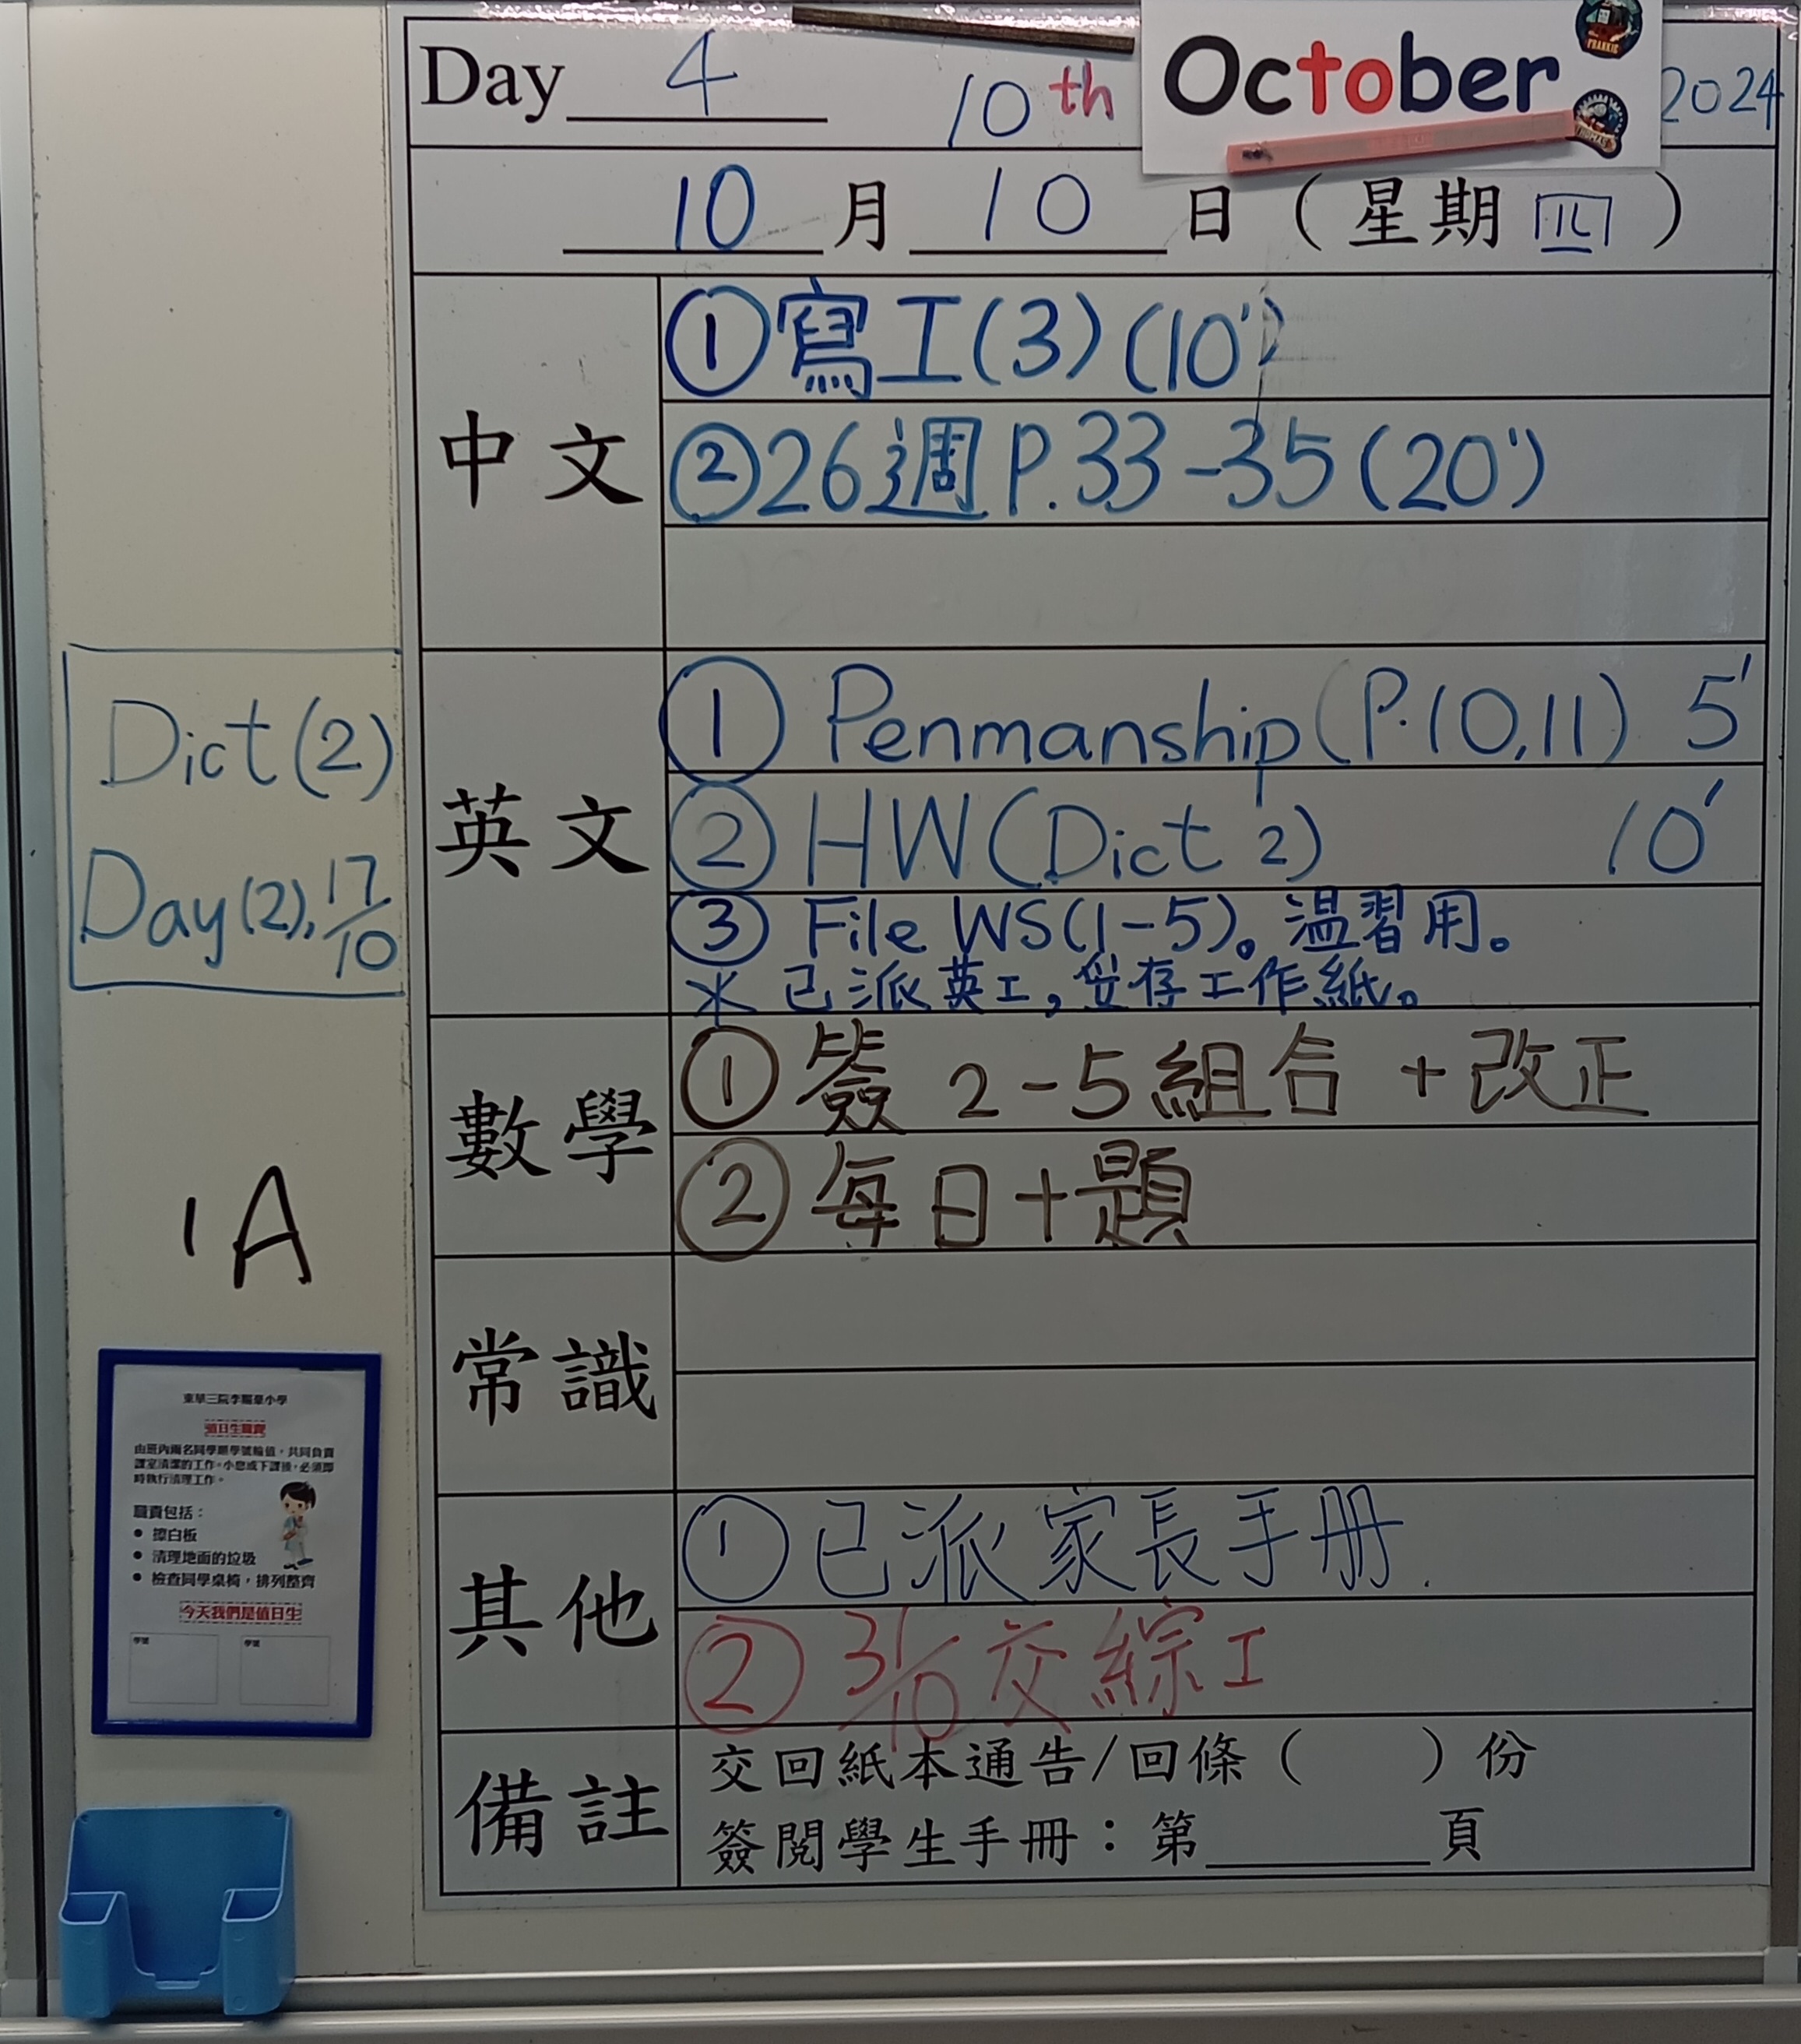 Day 4 10th October 2024
10 月 10 日 ( 星期 四 )
中文
① 寫工(3) (10')
② 26週 P.33-35 (20')
英文
① Penmanship (P.10,11) 5'
② HW (Dict 2) 10'
③ File WS(1-5)。溫習用。
* 已派英工，妥存工作紙。
Dict (2)
Day (2), 17/10
數學
① 簽 2-5組合 + 改正
② 每日十題
1A
常識
其他
① 已派家長手冊.
② 31/10 交綜工
備註
交回紙本通告/回條 ( ) 份
簽閱學生手冊：第 頁
值日生職責
由班內兩名同學順學號輪值，共同負責
課室清潔的工作。小息或下課後，必須即
時執行清理工作。
職責包括：
● 擦白板
● 清理地面的垃圾
● 檢查同學桌椅，排列整齊
今天我們是值日生
學號 學號